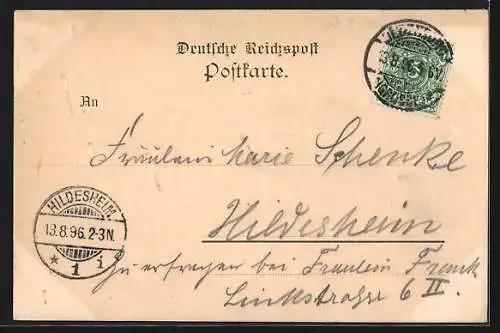 Deutsche Reichspost
Postkarte.
An
Fräulein Marie Schenke
Hildesheim
HILDESHEIM
13.8.96.2-3N.
* 1 i
zu erfragen bei Fräulein Frank
Linkstraße 6 II.
13.8.
5